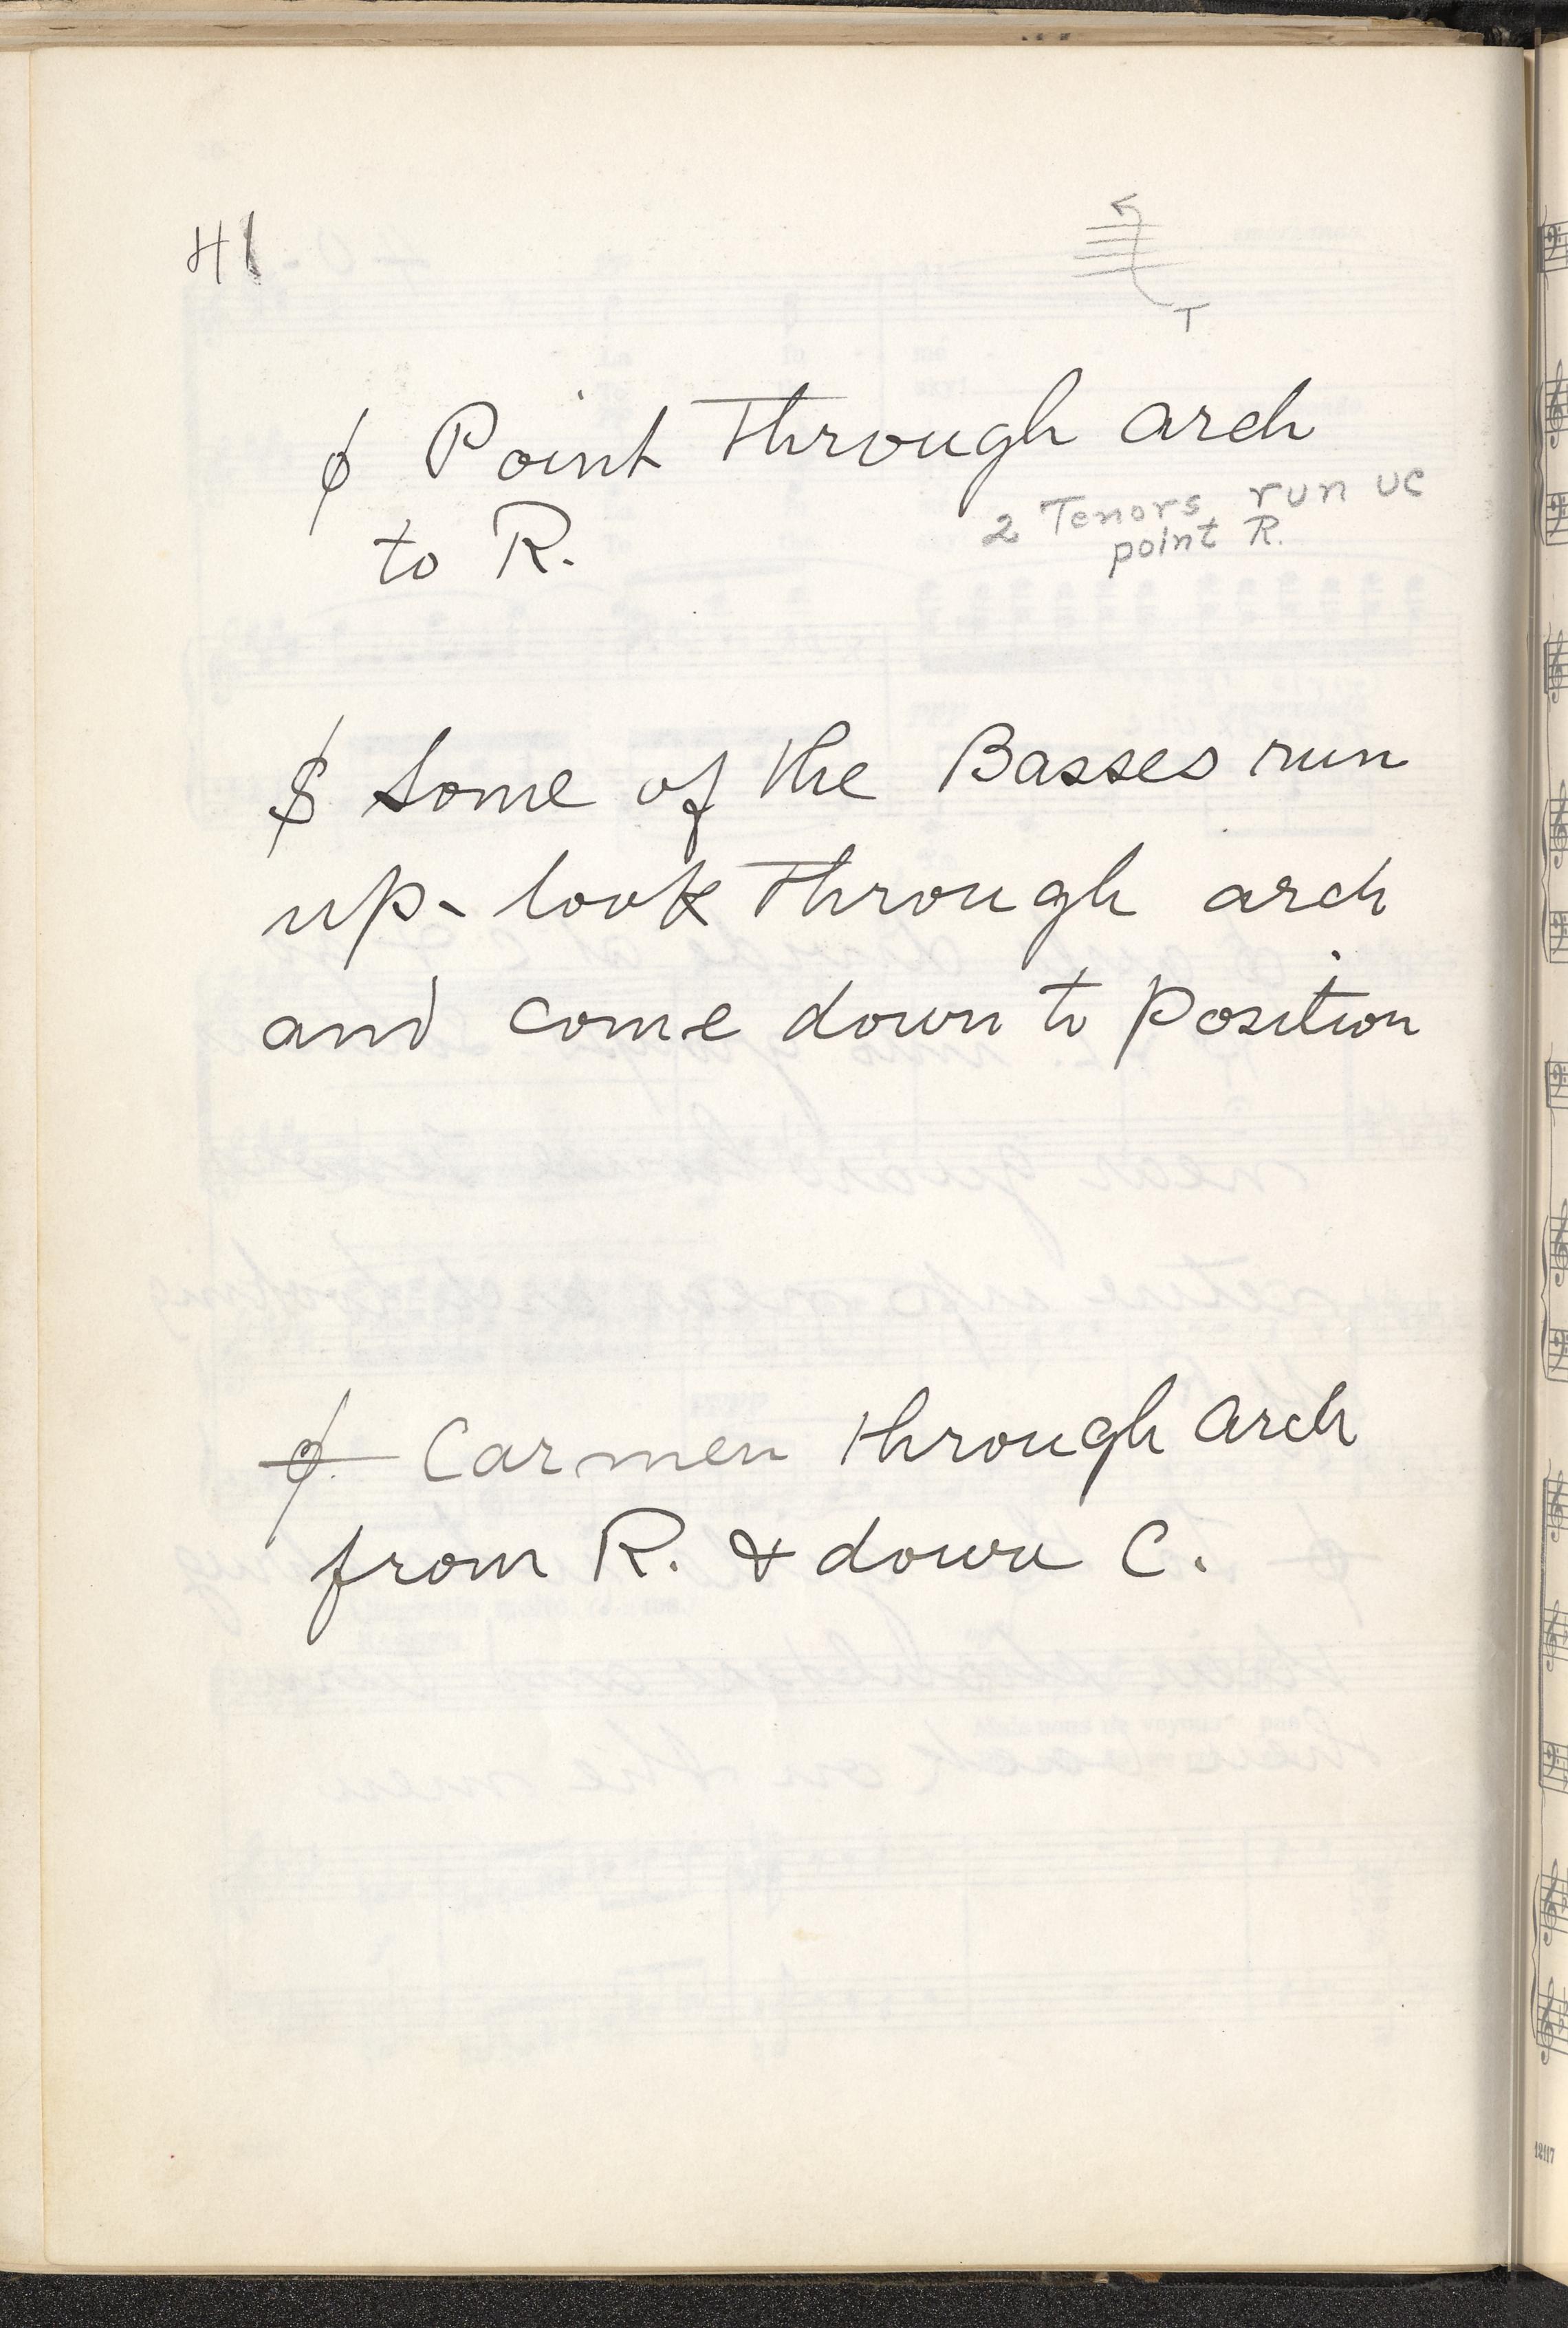 41
T
ϕ Point Through arch
2 Tenors run UC
point R.
to R.
$ Some of the Basses run
up - look Through arch
and come down to position
ϕ Carmen through arch
from R. & down C.
12117